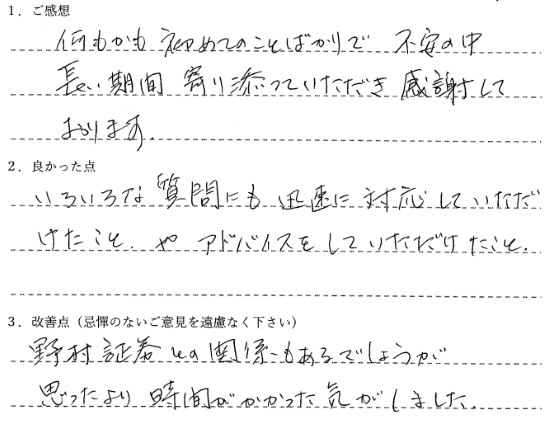 1．ご感想
何もかも初めてのことばかりで 不安の中
長い期間 寄り添っていただき 感謝して
おります。
2．良かった点
いろいろな質問にも 迅速に 対応していただ
けたこと、や アドバイスをしていただけたこと。
3．改善点（忌憚のないご意見を遠慮なく下さい）
野村証券との関係もあるでしょうが
思ったより 時間がかかった気がしました。